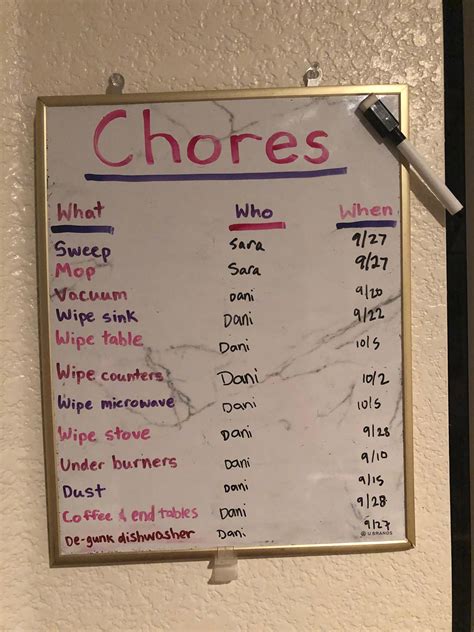 Chores
What Who When
Sweep Sara 9/27
Mop Sara 9/27
Vacuum Dani 9/20
Wipe sink Dani 9/22
Wipe table Dani 10/5
Wipe counters Dani 10/2
Wipe microwave Dani 10/5
Wipe stove Dani 9/28
Under burners Dani 9/10
Dust Dani 9/15
Coffee & end tables Dani 9/28
De-gunk dishwasher Dani 9/27
U BRANDS